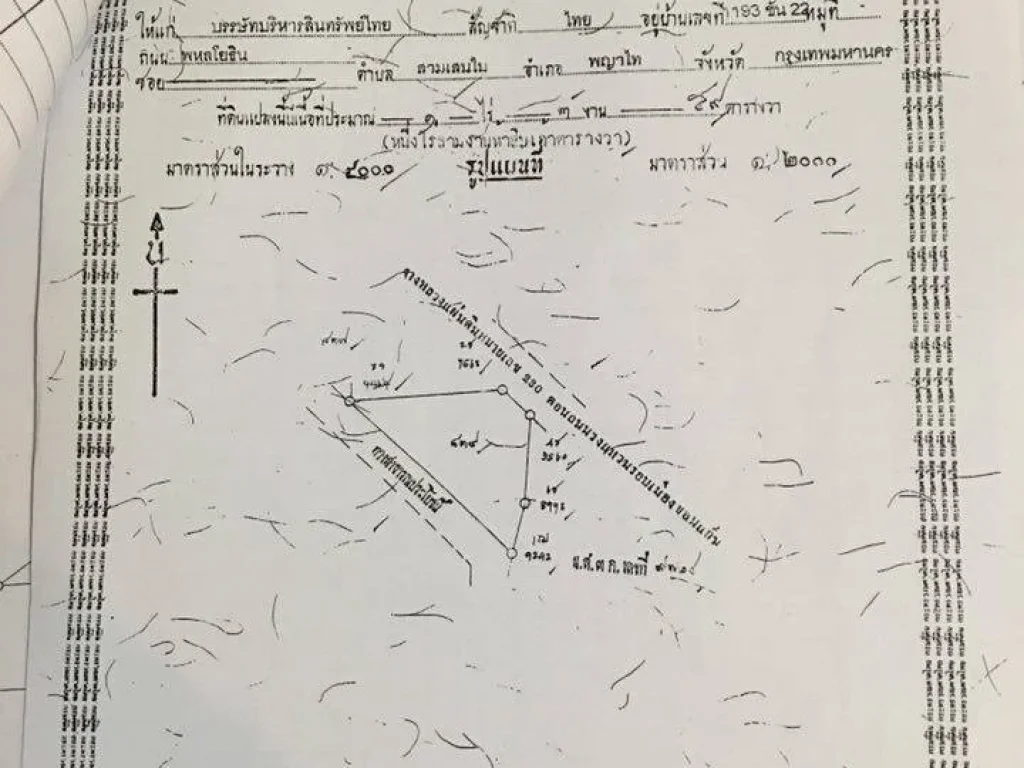 ให้แก่ บรรษัทบริหารสินทรัพย์ไทย สัญชาติ ไทย อยู่บ้านเลขที่ 1193 ชั้น 23 หมู่ที่
ถนน พหลโยธิน
ซอย ตำบล สามเสนใน อำเภอ พญาไท จังหวัด กรุงเทพมหานคร
ที่ดินแปลงนี้มีเนื้อที่ประมาณ ๑ ไร่ ๓ งาน ๕๙ ตารางวา
(หนึ่งไร่สามงานห้าสิบเก้าตารางวา)
มาตราส่วนในระวาง ๑: ๔๐๐๐ รูปแผนที่ มาตราส่วน ๑: ๒๐๐๐
น
ทางหลวงแผ่นดินหมายเลข 230 ตอนถนนวงแหวนรอบเมืองขอนแก่น
ทางสาธารณประโยชน์
น.ส.๓ ก. เลขที่